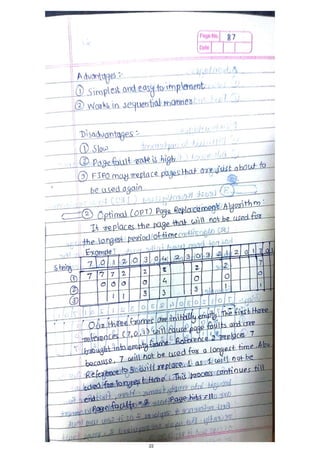 Page No. 87
Date
Advantages :-
① Simplest and easy to implement
② Works in sequential manner
Disadvantages :-
① Slow
② Page fault rate is high
③ FIFO may replace pages that are just about to
be used again
② Optimal (OPT) Page Replacement Algorithm :
It replaces the page that will not be used for
the longest period of time
Example
String 7 0 1 2 0 3 0 4 2 3 0 3 2 1 2 0 1 7 0 1
① 7 7 7 2 2 2 2 2
② 0 0 0 0 4 0 0 0
③ 1 1 3 3 3 1 1
Our three frames are initially empty. The first three
references (7,0,1) will cause page faults and are
brought into empty frame. Reference 2 replaces 7
because, 7 will not be used for a longest time.
Reference to 3 will replace 1 as 1 will not be
used for longest time. This process continues till
end.
Page faults = 9 Page hits = 11
22